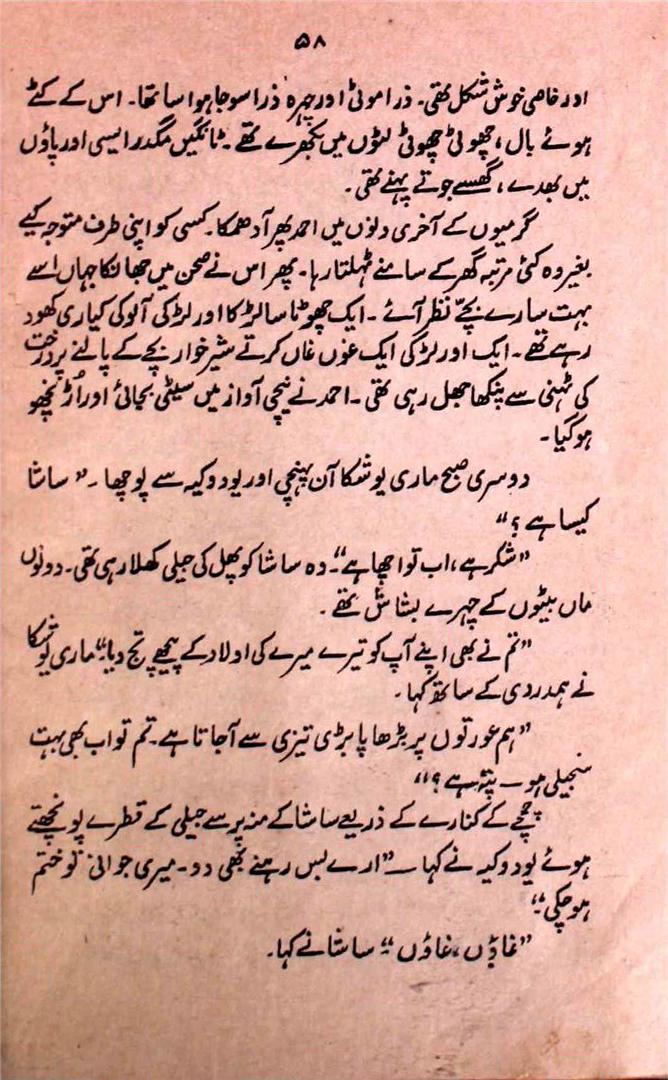 ۵۸
اور خاصی خوش شکل تھی۔ ذرا موٹی اور چہرہ ذرا سوجا ہوا سا تھا۔ اس کے کٹے
ہوئے بال، چھوٹی چھوٹی لٹوں میں بکھرے تھے۔ ٹانگیں مگدر ایسی اور پاؤں
میں بھدے، گھسے جوتے پہنے تھی۔
گرمیوں کے آخری دنوں میں احمد پھر آ دھمکا۔ کسی کو اپنی طرف متوجہ کیے
بغیر وہ کئی مرتبہ گھر کے سامنے ٹہلتا رہا۔ پھر اس نے صحن میں جھانکا جہاں اسے
بہت سارے بچّے نظر آئے ۔ ایک چھوٹا سا لڑکا اور لڑکی آلو کی کیاری کھود
رہے تھے۔ ایک اور لڑکی ایک غوں غاں کرتے شیر خوار بچے کے پالنے پر درخت
کی ٹہنی سے پنکھا جھل رہی تھی ۔ احمد نے نیچی آواز میں سیٹی بجائی اور اُڑنچھو
ہو گیا۔
دوسری صبح ماری یوشکا آن پہنچی اور یودوکیہ سے پوچھا ۔ ”ساشا
کیسا ہے ؟“
”شکر ہے، اب تو اچھا ہے“۔ وہ ساشا کو پھل کی جیلی کھلا رہی تھی۔ دونوں
ماں بیٹوں کے چہرے بشاش تھے ۔
”تم نے بھی اپنے آپ کو تیرے میرے کی اولاد کے پیچھے تج دیا“ ماری یوشکا
نے ہمدردی کے ساتھ کہا۔
”ہم عورتوں پر بڑھاپا بڑی تیزی سے آ جاتا ہے۔ تم تو اب بھی بہت
سنجیلی ہو — پتہ ہے ؟“
چمچے کے کنارے کے ذریعے ساشا کے منہ پر سے جیلی کے قطرے پونچھتے
ہوئے یودوکیہ نے کہا — ”ارے بس رہنے بھی دو۔ میری جوانی تو ختم
ہو چکی“۔
”غاؤں، غاؤں“ ساشا نے کہا۔